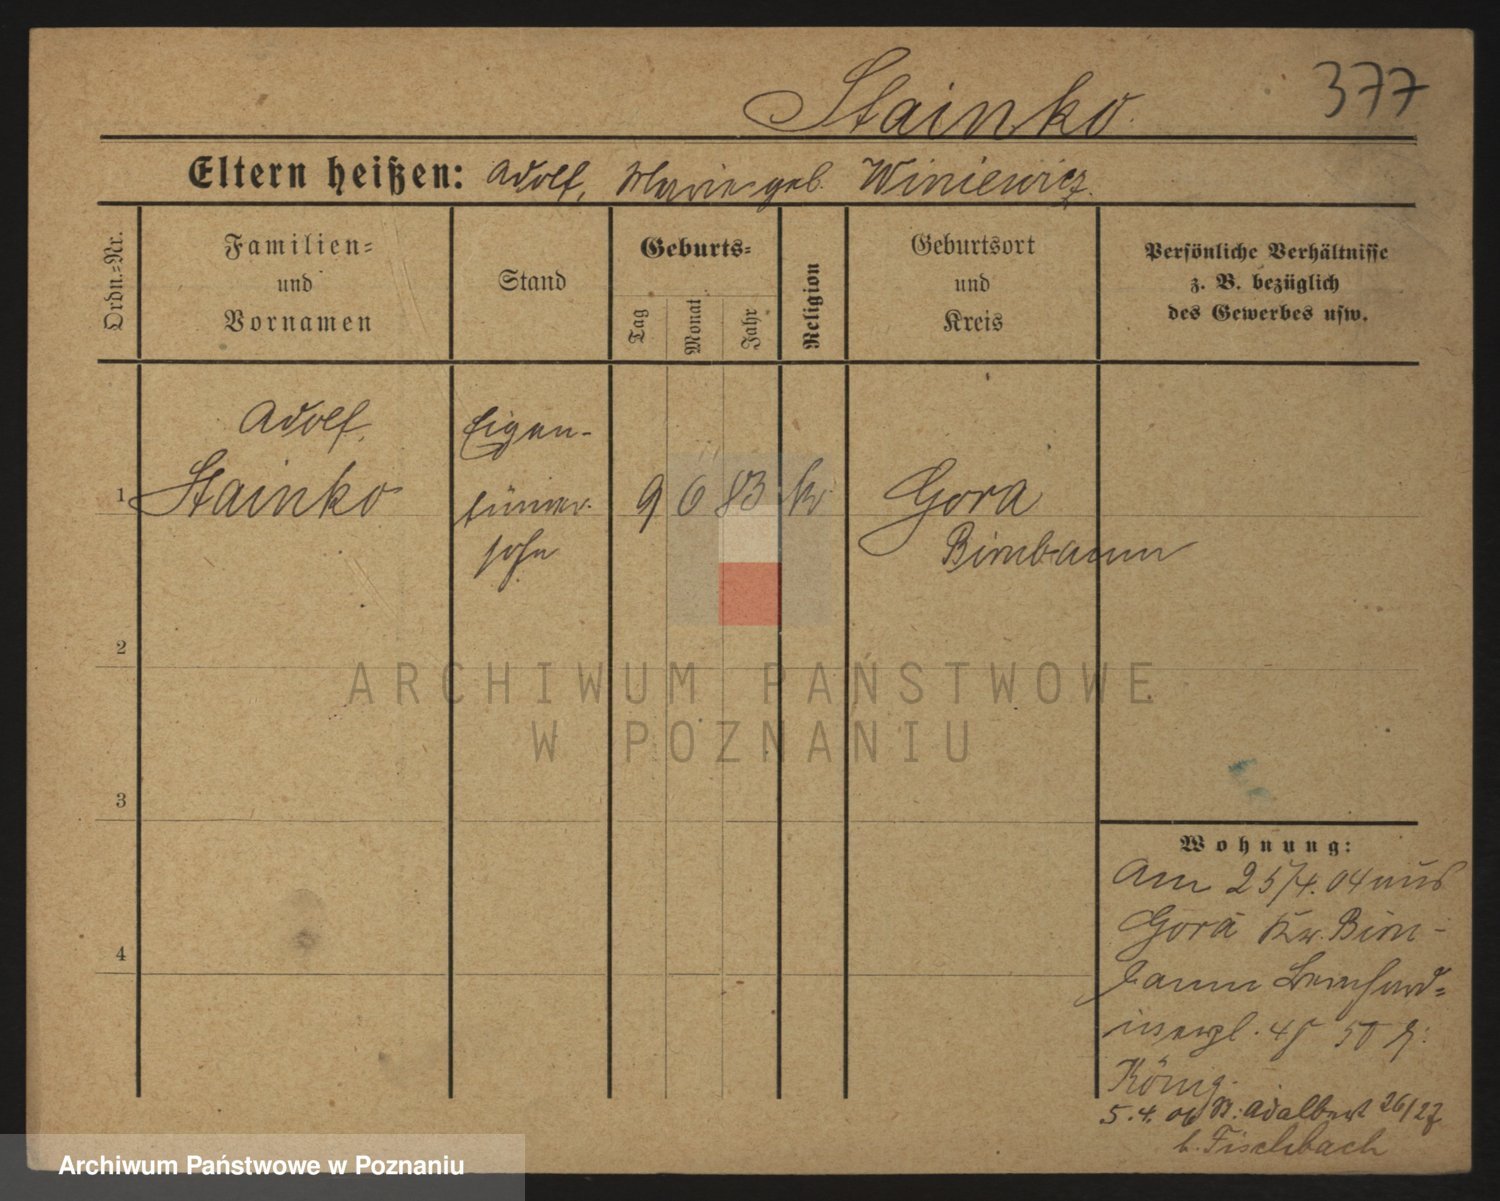 377
Stainko
Eltern heißen: Adolf, Marie geb. Winiewicz.
Ordn.=Nr.
Familien=
und
Vornamen
Stand
Geburts=
Tag
Monat
Jahr
Religion
Geburtsort
und
Kreis
Persönliche Verhältnisse
z. B. bezüglich
des Gewerbes usw.
1
Adolf
Stainko
Eigen-
tümer
sohn
9 6 83
Gora
Birnbaum
2
3
4
Wohnung:
Am 25/4. 04 aus
Gora Kr. Birn-
baum Bernhard=
50
König.
5. 4. 06 Adalbert 26/27
b. Fischbach
ARCHIWUM PAŃSTWOWE
W POZNANIU
Archiwum Państwowe w Poznaniu